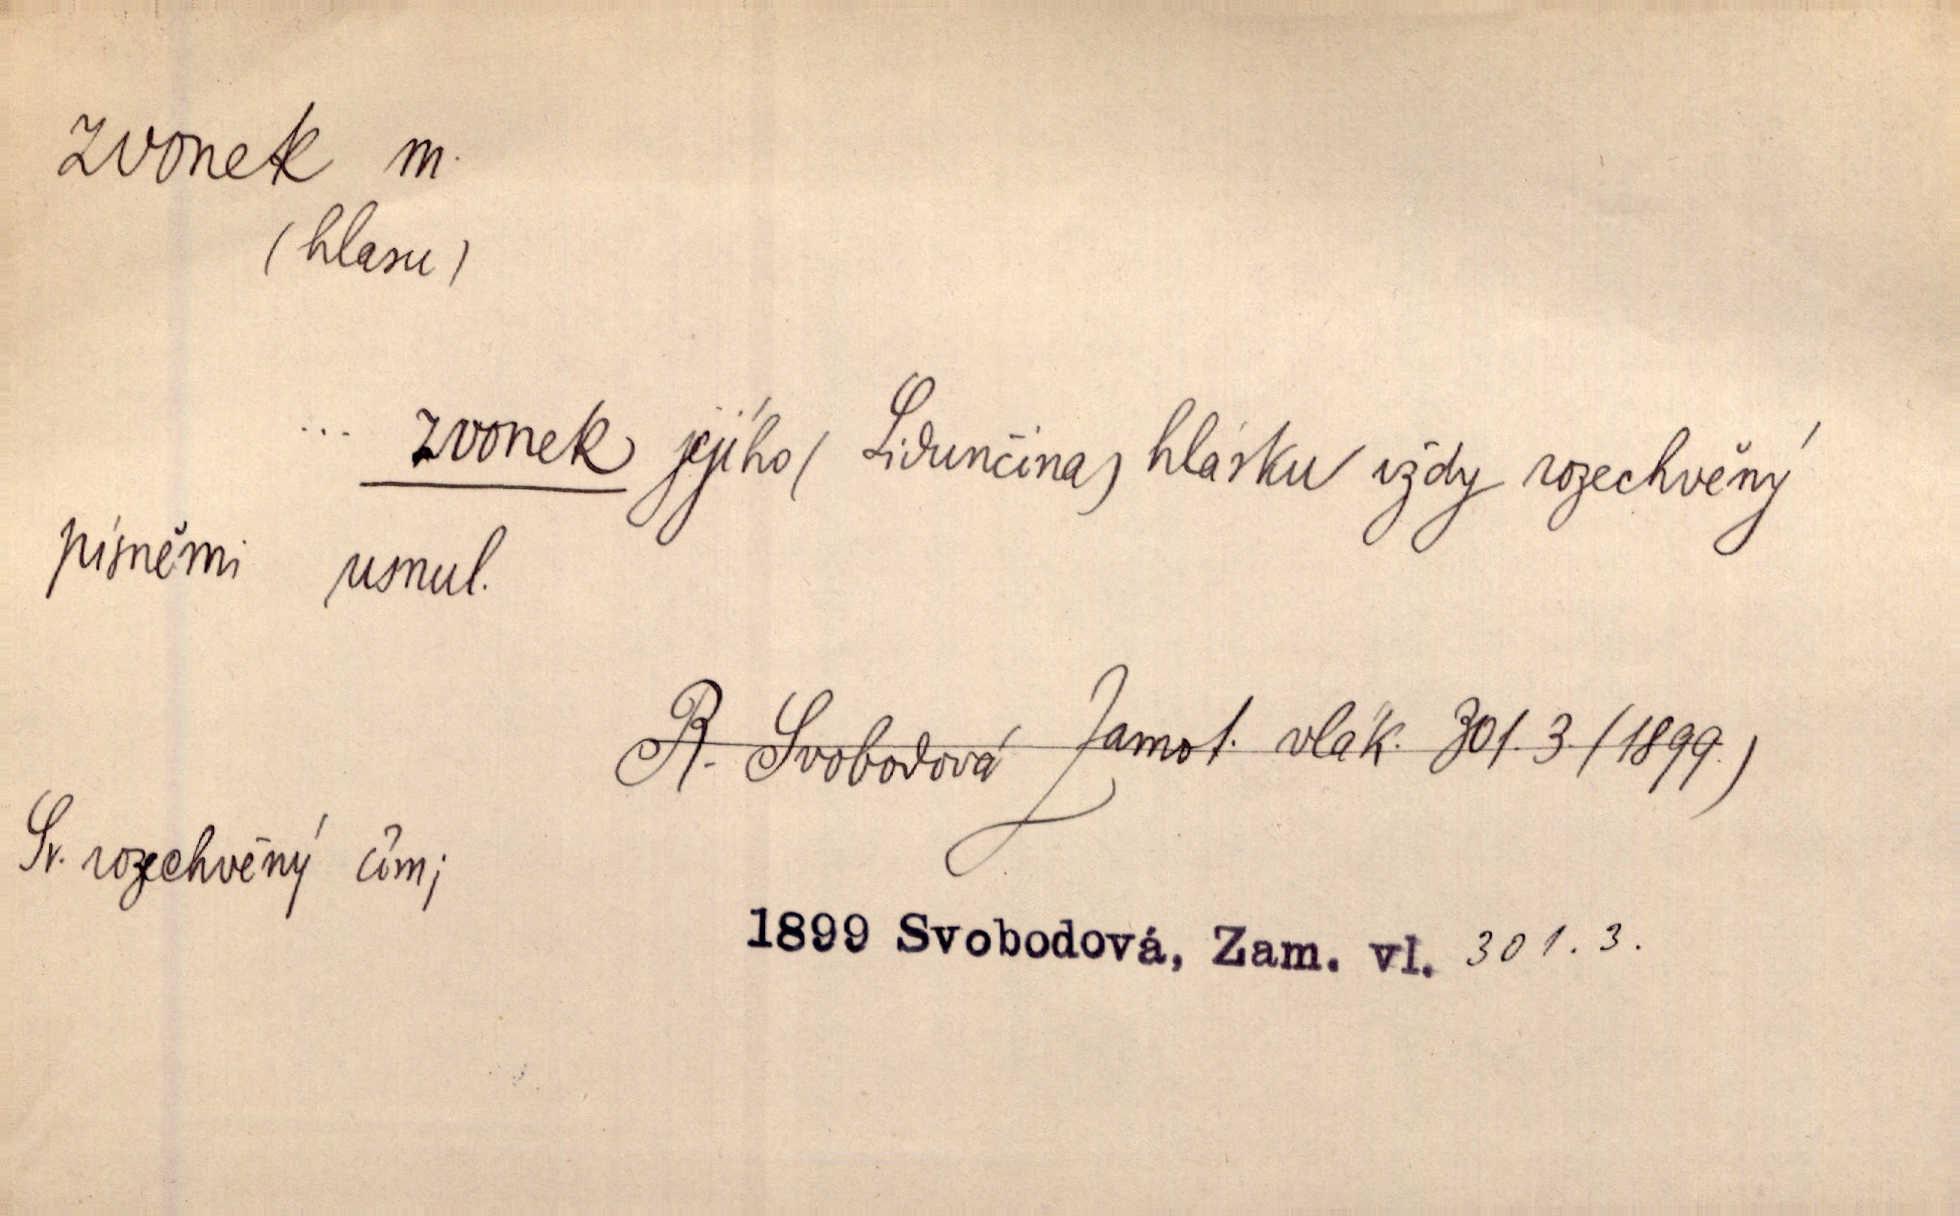 zvonek m.
(hlasu)
... zvonek jejího (Lidunčina) hlásku vždy rozechvěný
písněmi usnul.
R. Svobodová Zamot. vlák. 301.3. (1899.)
Sr. rozechvěný čím;
1899 Svobodová, Zam. vl. 301.3.